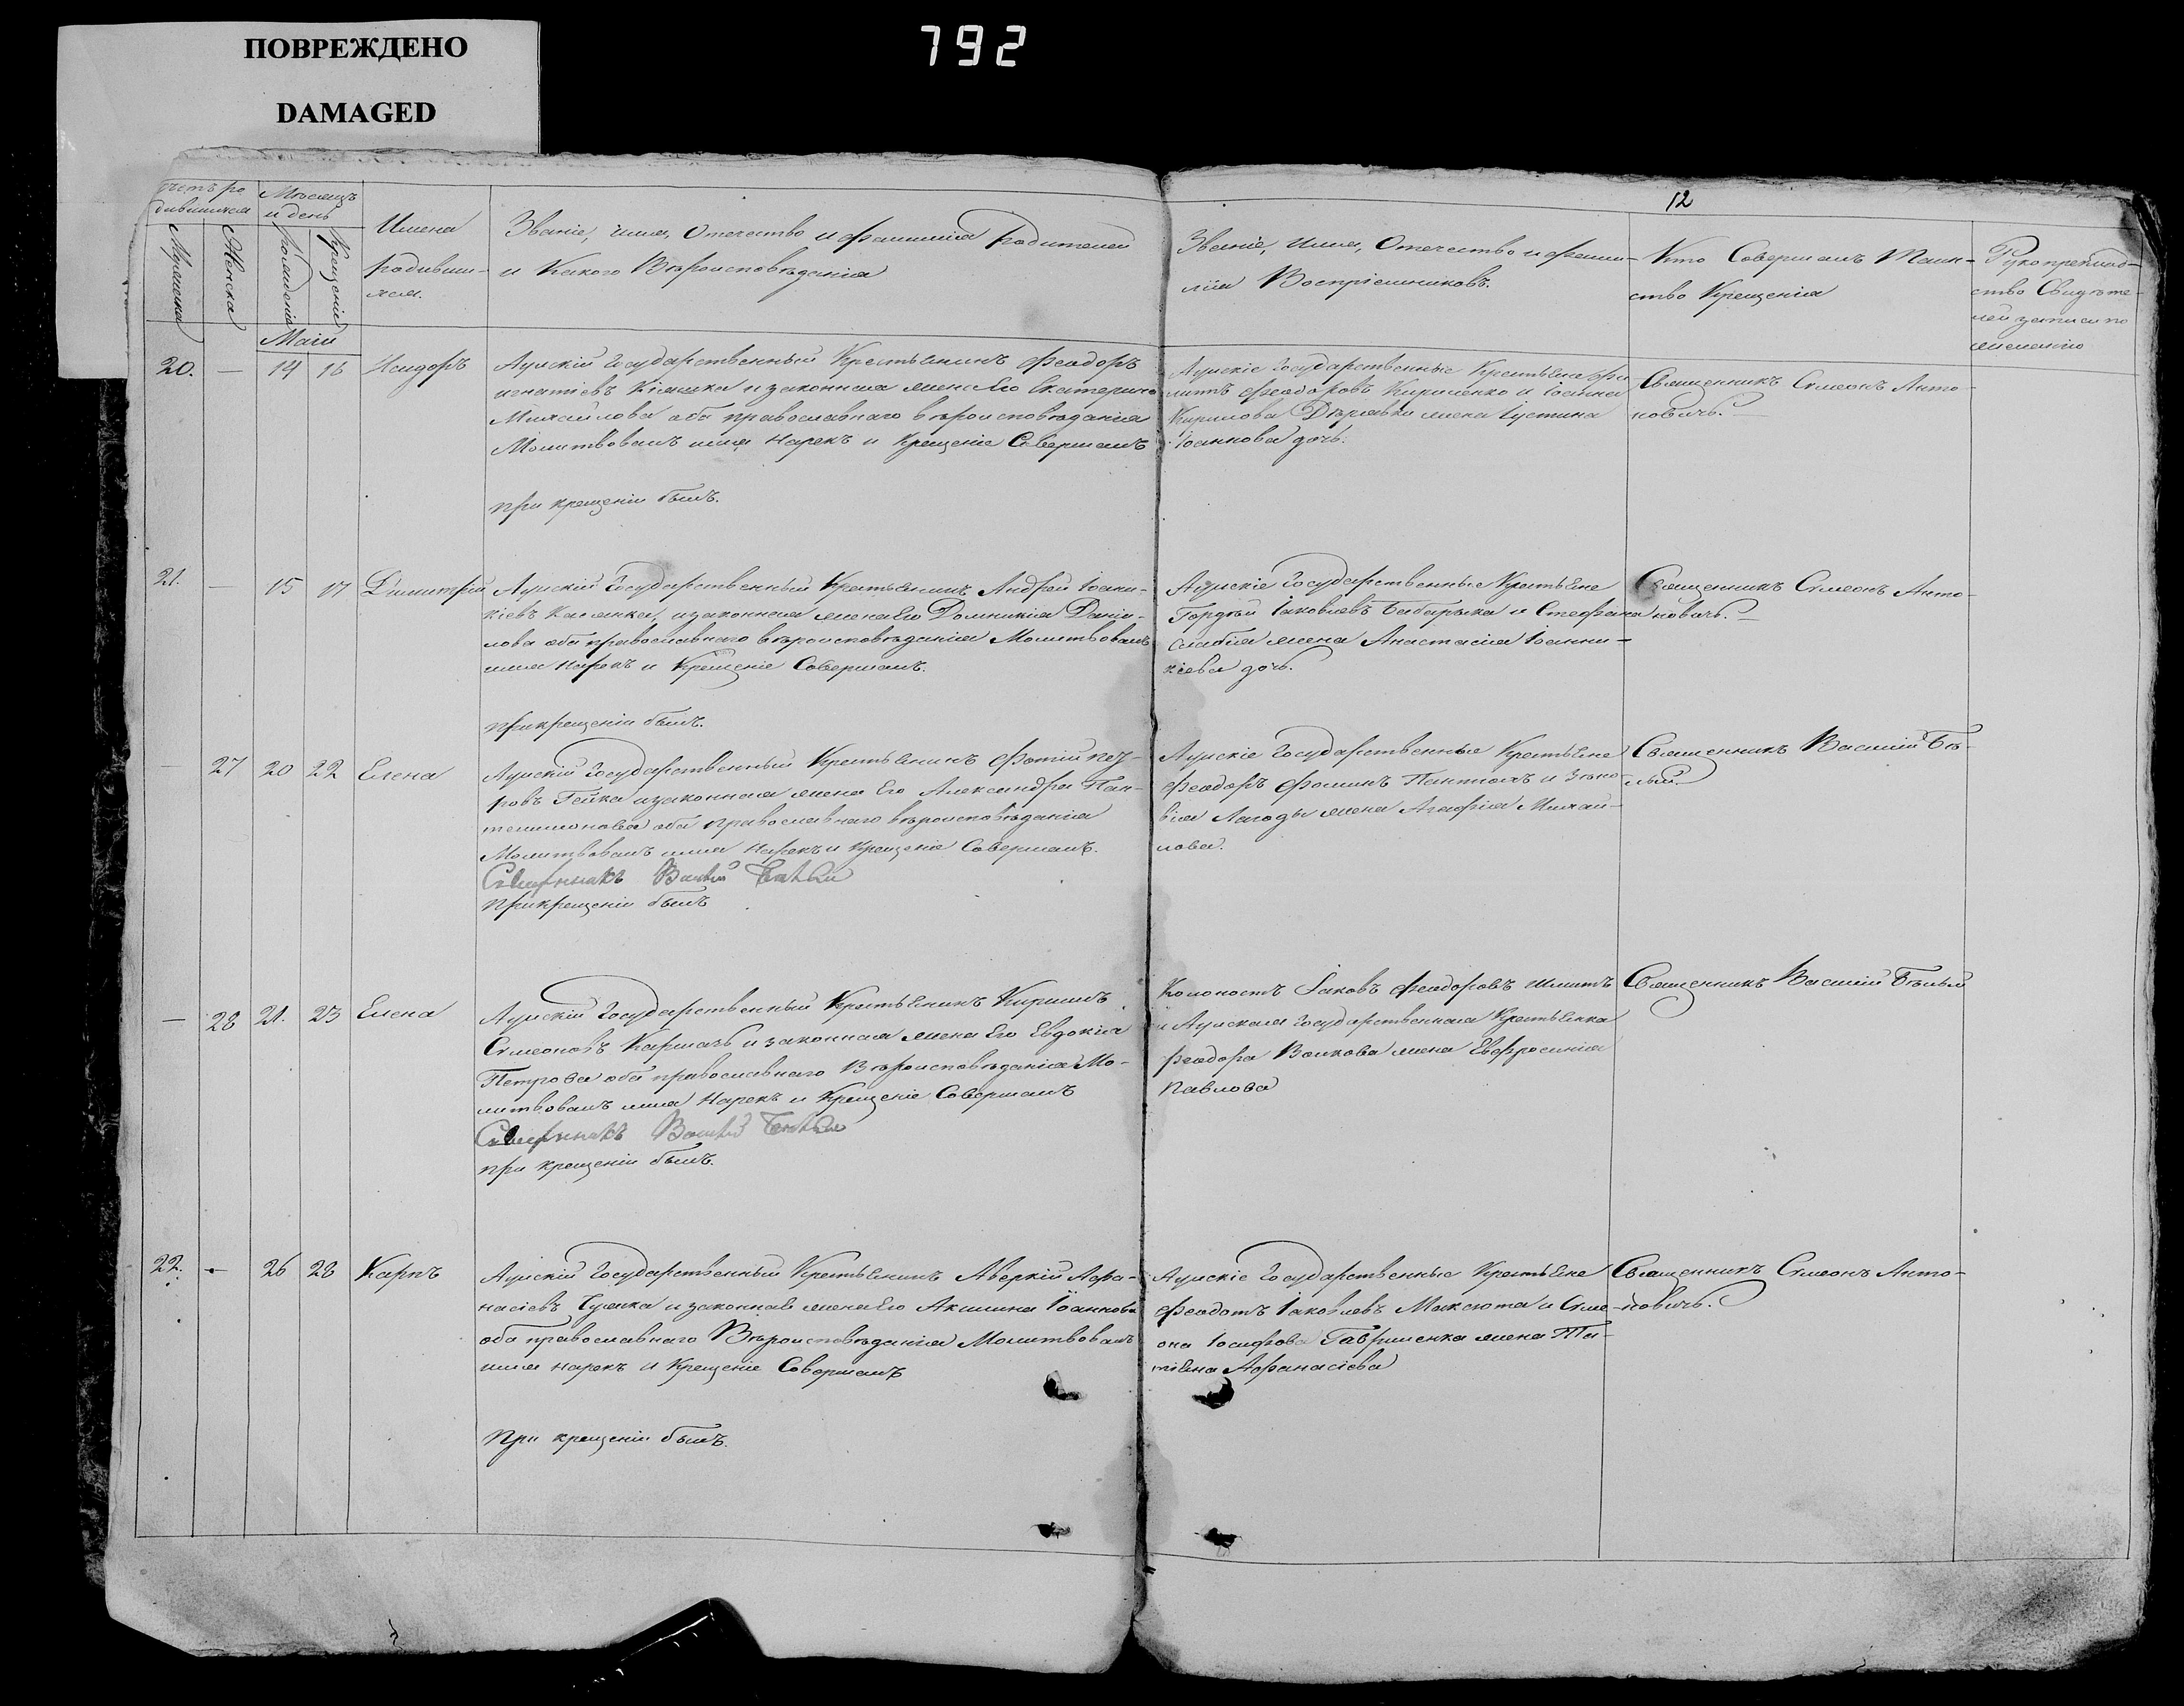 ПОВРЕЖДЕНО
DAMAGED
792
12
Мѣсяцъ
и день
Мужеска
Женска
рожденія
Крещенія
Имена
родивши-
хся.
Званіе, имя, Отечество и фамилія родителей
и Какого Вѣроисповѣданія
Званіе, имя, Отечество и фами-
лія Воспріемниковъ.
Кто Совершалъ Таин-
ство Крещенія
Рукоприклад-
ство Свидѣте-
лей записи по
желанію
Маія
20. — 14 16 Исидоръ
Государственный Крестьянинъ Феодоръ
и законная жена Его Екатерина
Михайлова оба православнаго вѣроисповѣданія
Молитвовалъ имя Нарекъ и Крещеніе Совершалъ
при крещеніи былъ.
Государственные Крестьяне
Феодоровъ Кириленко и
Кирилова жена Іустина
Іоаннова дочь.
Священникъ Симеонъ Анто-
новичъ.
21. — 15 17 Димитрій
Государственный Крестьянинъ Андрей Іоани-
кіевъ и законная жена Его Домникія Дани-
лова оба православнаго вѣроисповѣданія Молитвовалъ
имя Нарекъ и Крещеніе Совершалъ.
при крещеніи былъ.
Государственные Крестьяне
Гордѣй Іаковлевъ Бабарыка и Стефана
жена Анастасія Іоанни-
кіева дочь.
Священникъ Симеонъ Анто-
новичъ.
— 27 20 22 Елена
Государственный Крестьянинъ Фотій Пет-
ровъ Гейка и законная жена Его Александра Пан-
телимонова оба православнаго вѣроисповѣданія
Молитвовалъ имя Нарекъ и Крещеніе Совершалъ.
Священникъ Василій Бѣлый
При крещеніи былъ
Государственные Крестьяне
Феодоръ Фоминъ и Зѣно-
вія Лагоды жена Агафія Михай-
лова.
Священникъ Василій Бѣ-
лый
— 28 21. 23 Елена
Государственный Крестьянинъ Кирилъ
Симеоновъ и законная жена Его Евдокія
Петрова оба православнаго Вѣроисповѣданія Мо-
литвовалъ имя Нарекъ и Крещеніе Совершалъ
Священникъ Василій Бѣлый
при крещеніи былъ.
Колонистъ Іаковъ Феодоровъ Шмитъ
и государственная Крестьянка
Феодора Волкова жена Евфросинія
Павлова
Священникъ Василій Бѣлый
22. — 26 28 Карпъ
Государственный Крестьянинъ Аверкій Афа-
насіевъ и законная жена Его Акилина Іоаннова
оба православнаго Вѣроисповѣданія Молитвовалъ
имя нарекъ и Крещеніе Совершалъ
При крещеніи былъ.
Государственные Крестьяне
Феодотъ Іаковлевъ Максюта и Симе-
она Іосифова Гавриленка жена Та-
тіана Афанасіева
Священникъ Симеонъ Анто-
новичъ.